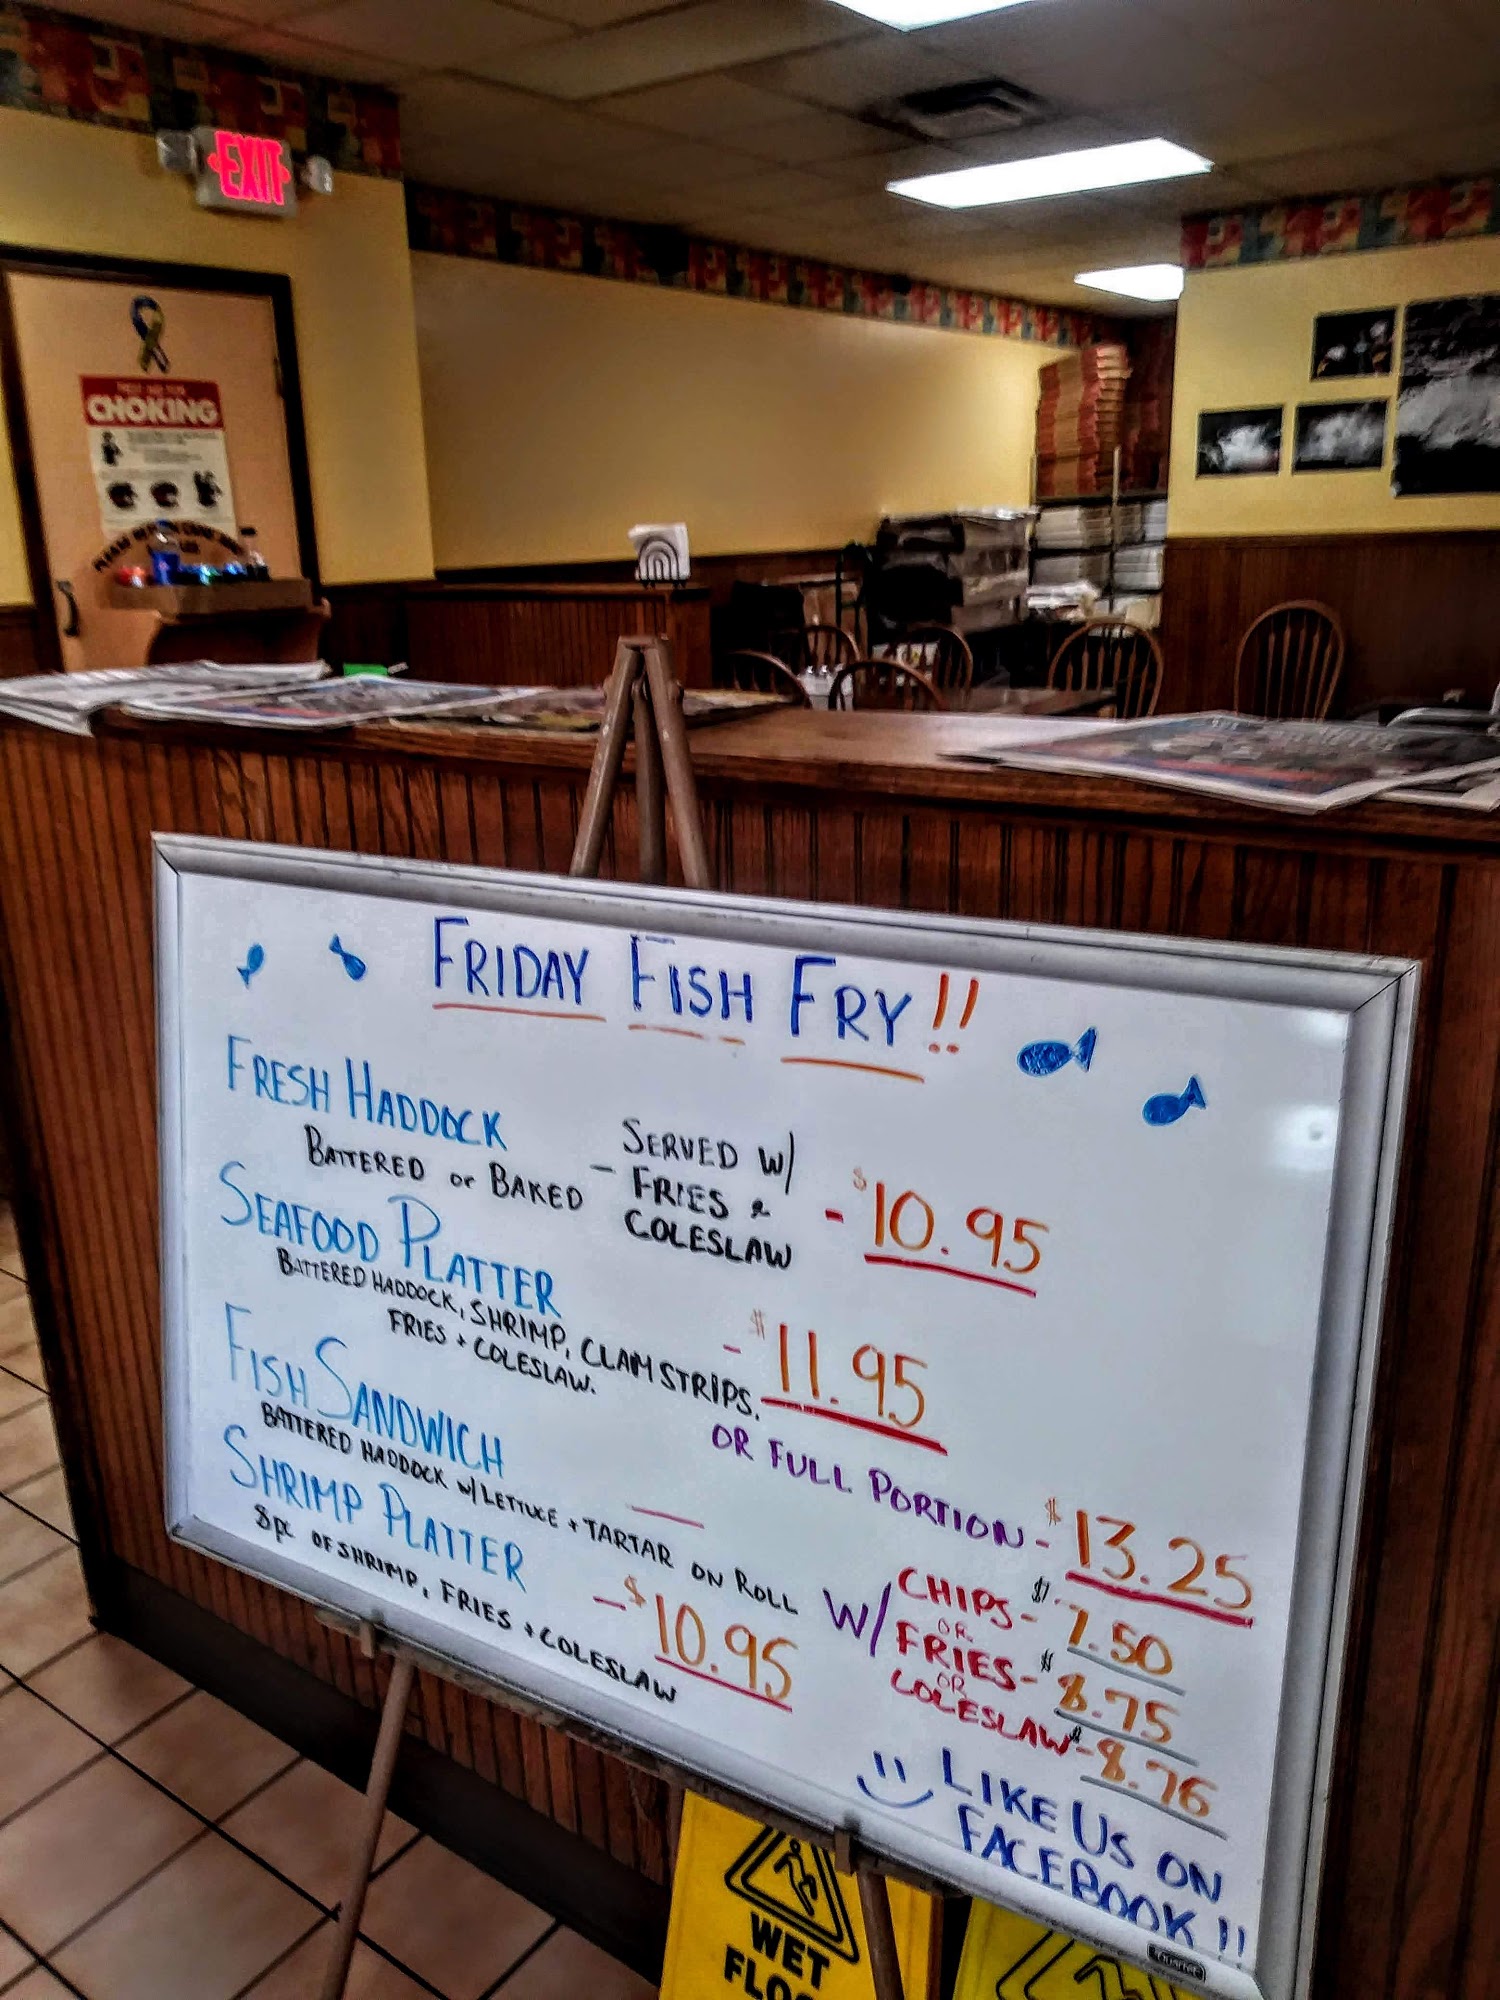 EXIT
CHOKING
FRIDAY FISH FRY!!
FRESH HADDOCK
BATTERED or BAKED - SERVED W/ FRIES & COLESLAW - $10.95
SEAFOOD PLATTER
BATTERED HADDOCK, SHRIMP, CLAM STRIPS.
FRIES + COLESLAW.
- $11.95
OR FULL PORTION - $13.25
FISH SANDWICH
BATTERED HADDOCK W/ LETTUCE + TARTAR ON ROLL
W/
CHIPS - $7.50
OR
FRIES - $8.75
OR
COLESLAW - $8.76
SHRIMP PLATTER
8pc OF SHRIMP, FRIES + COLESLAW
- $10.95
LIKE US ON
FACEBOOK!!
WET